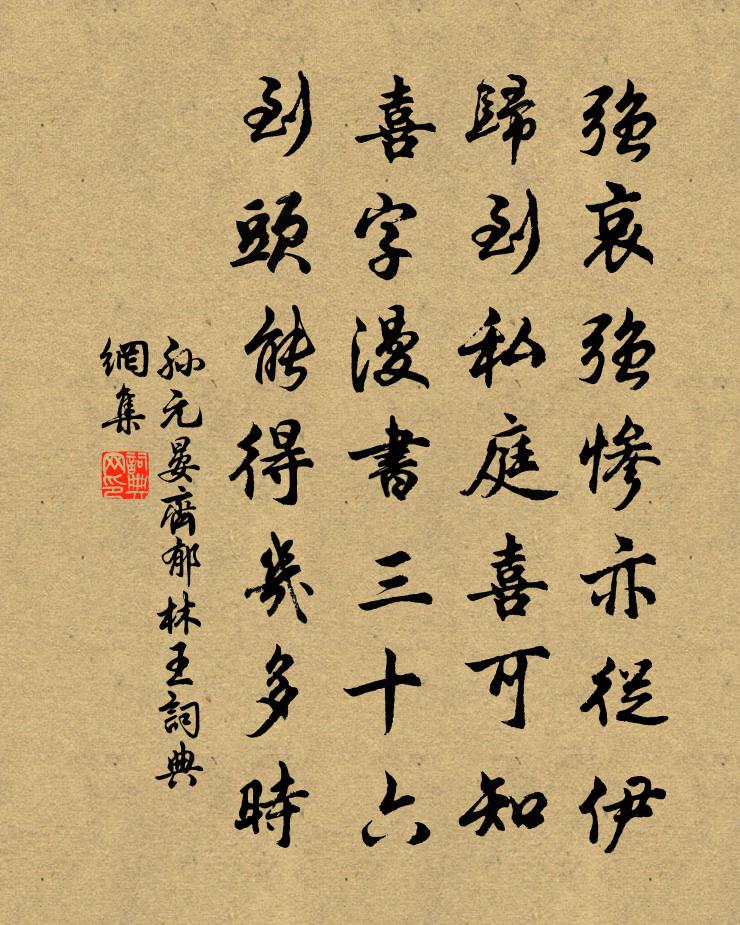 強哀強慘亦從伊
歸到私庭喜可知
喜字漫書三十六
到頭能得幾多時
孫元晏齊郁林王詞典
網集
詞典
网印